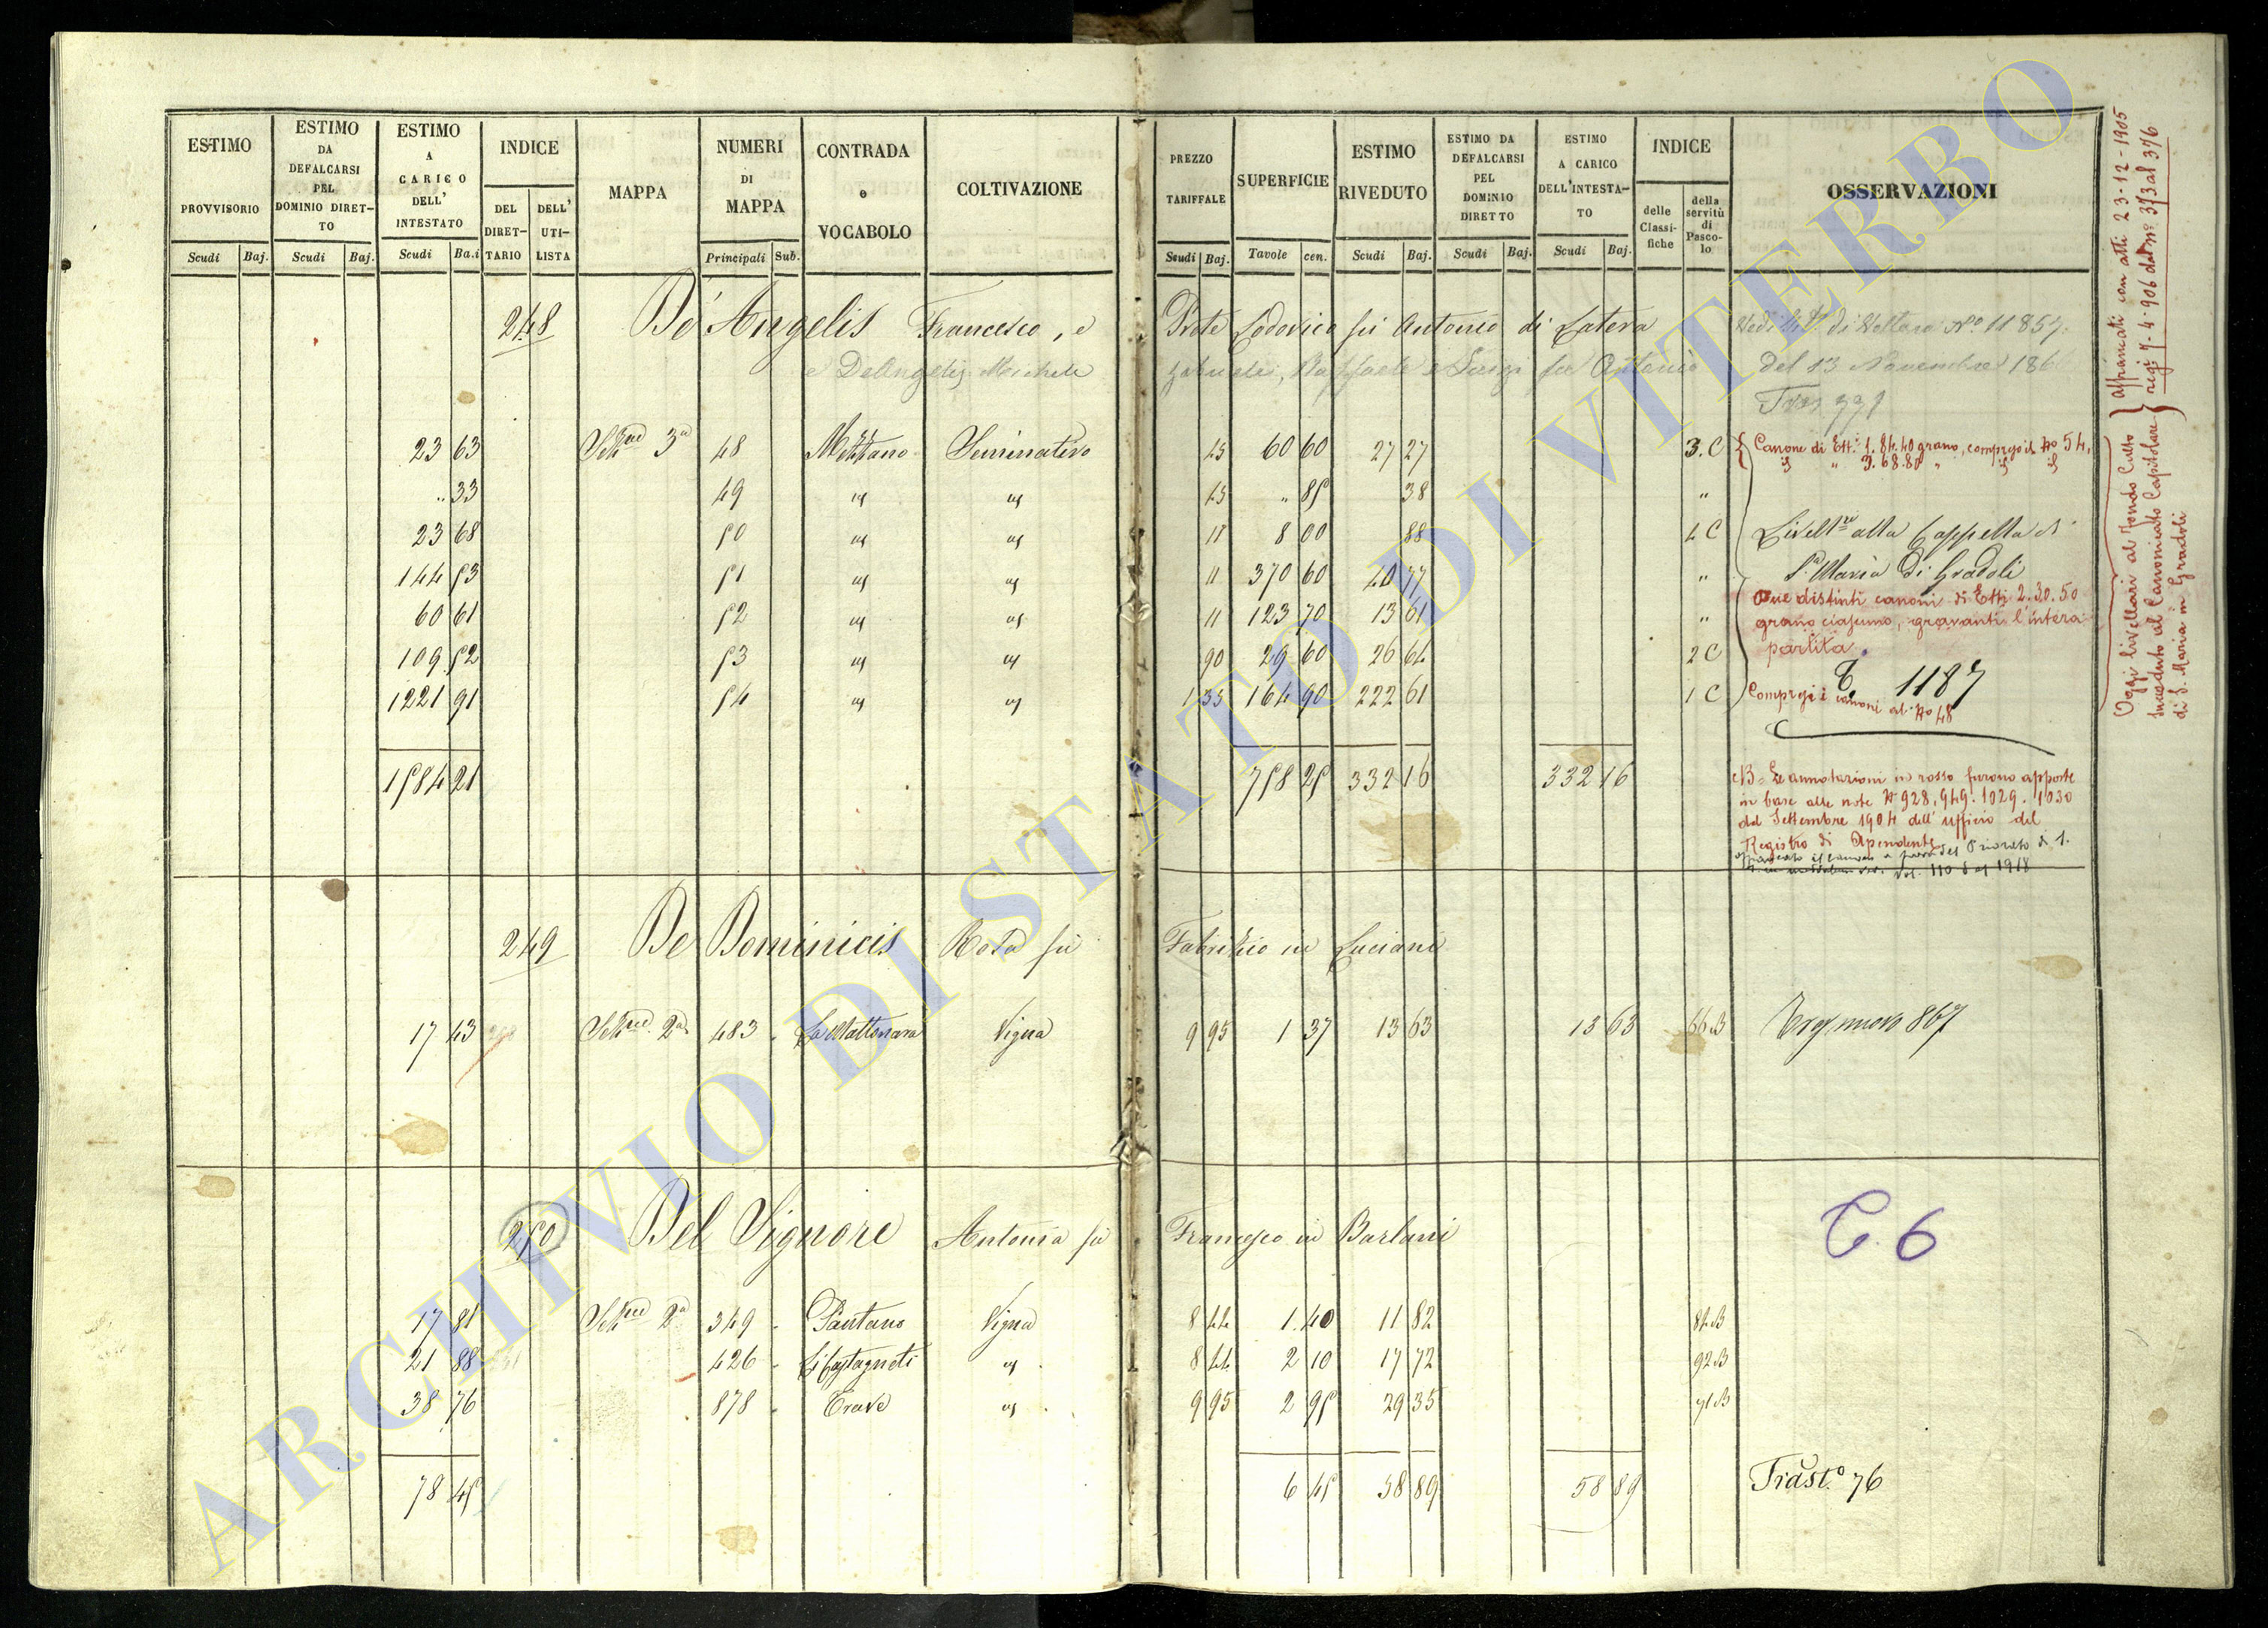 ESTIMO PROVVISORIO
ESTIMO DA DEFALCARSI PEL DOMINIO DIRETTO
ESTIMO A CARICO DELL' INTESTATO
INDICE
DEL DIRETTARIO
DELL' UTILISTA
MAPPA
NUMERI DI MAPPA
CONTRADA o VOCABOLO
COLTIVAZIONE
PREZZO TARIFFALE
SUPERFICIE
ESTIMO RIVEDUTO
ESTIMO DA DEFALCARSI PEL DOMINIO DIRETTO
ESTIMO A CARICO DELL'INTESTATO
INDICE
delle Classifiche
della servitù di Pascolo
OSSERVAZIONI
Scudi Baj. Scudi Baj. Scudi Ba.i Principali Sub. Scudi Baj. Tavole cen. Scudi Baj. Scudi Baj. Scudi Baj.
248 De Angelis Francesco, e Prete Lodovico fù Antonio di Latera
e DeAngelis Michele Gabriele, Raffaele e Luigi fu Antonio
Del 13 Novembre 186
23 63 Sezne 3a 48 Mezzano Seminativo 15 60 60 27 27 3.C
.. 33 49 id id 45 .. 85 38 "
23 68 50 id id 11 8 00 88 4 C
144 53 51 id id 11 370 60 40 77 "
60 61 52 id id 11 123 70 13 61 "
109 52 53 id id 90 29 60 26 64 2 C
1221 91 54 id id 1 35 164 90 222 61 1 C
1584 21 758 25 332 16 332 16
Canone di Ett. 1.84.40 grano, compreso il No 54.
id " 3.68.80 " id id
Livellre alla Cappella di
S. Maria di Gradoli
Due distinti canoni di Ett. 2.30.50
grano ciascuno, gravanti l'intera
partita.
T. 1187
Compresi i canoni al No 48
NB. Le annotazioni in rosso furono apposte
in base alle note No 928, 949. 1029. 1030
del Settembre 1904 dell'ufficio del
Registro di Acquapendente
Oggi livellari al Fondo Culto
succeduto al Canonicato Capitolare
di S. Maria in Gradoli
affrancati con atti 23-12-1905
reg. 7-4-906 dal No 373 al 376
249 De Dominicis Rosa fù Fabrizio in Luciani
17 43 Sezne 2a 483 La Mattonara Vigna 9 95 1 37 13 63 13 63 66.B
867
250 Del Signore Antonia fù Francesco in Barlani
17 81 Sezne 2a 349 Pantano Vigna 8 44 1.40 11 82 84.B
21 88 426 Li Castagneti id 8 44 2 10 17 72 92.B
38 76 878 Trave id 9 95 2 95 29 35 71.B
78 45 6 45 58 89 58 89
T. 6
Trasto 76
ARCHIVIO DI STATO DI VITERBO